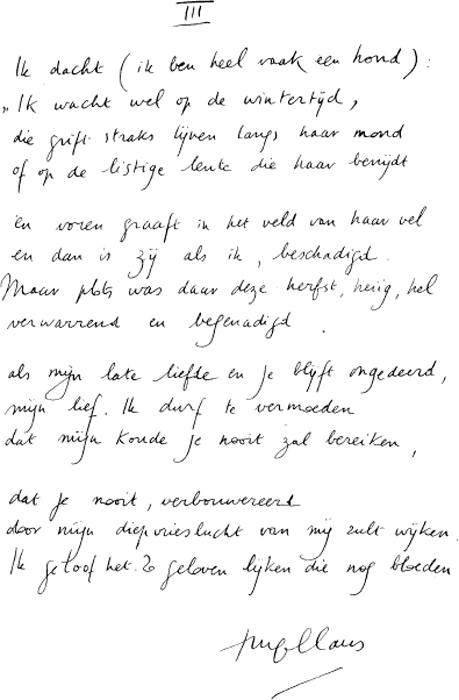 III
Ik dacht (ik ben heel vaak een hond):
"Ik wacht wel op de wintertijd,
die grift straks lijnen langs haar mond
of op de listige lente die haar benijdt
en voren graaft in het veld van haar vel
en dan is zij als ik, beschadigd.
Maar plots was daar deze herfst, heiig, hel
verwarrend en begenadigd.
als mijn late liefde en je blijft ongedeerd,
mijn lief. Ik durf te vermoeden
dat mijn koude je nooit zal bereiken,
dat je nooit, verbouwereerd
door mijn diepvrieslucht van mij zult wijken.
Ik geloof het. Zo geloven lijken die nog bloeden
Hugo Claus